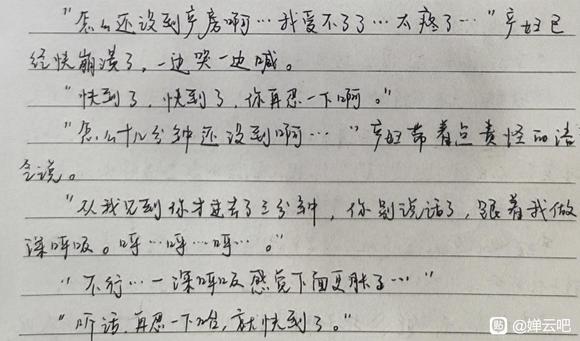 “怎么还没到产房啊…我受不了了…太疼了…”产妇已
经快崩溃了，一边哭一边喊。
“快到了，快到了，你再忍一下啊。”
“怎么十几分钟还没到啊…”产妇带着点责怪的语
会说。
“从我见到你才过去了三分钟，你别说话了，跟着我做
深呼吸。呼…呼…呼…。”
“不行…一深呼吸感觉下面更胀了…”
“听话，再忍一下哈，就快到了。”
贴 @婵云吧